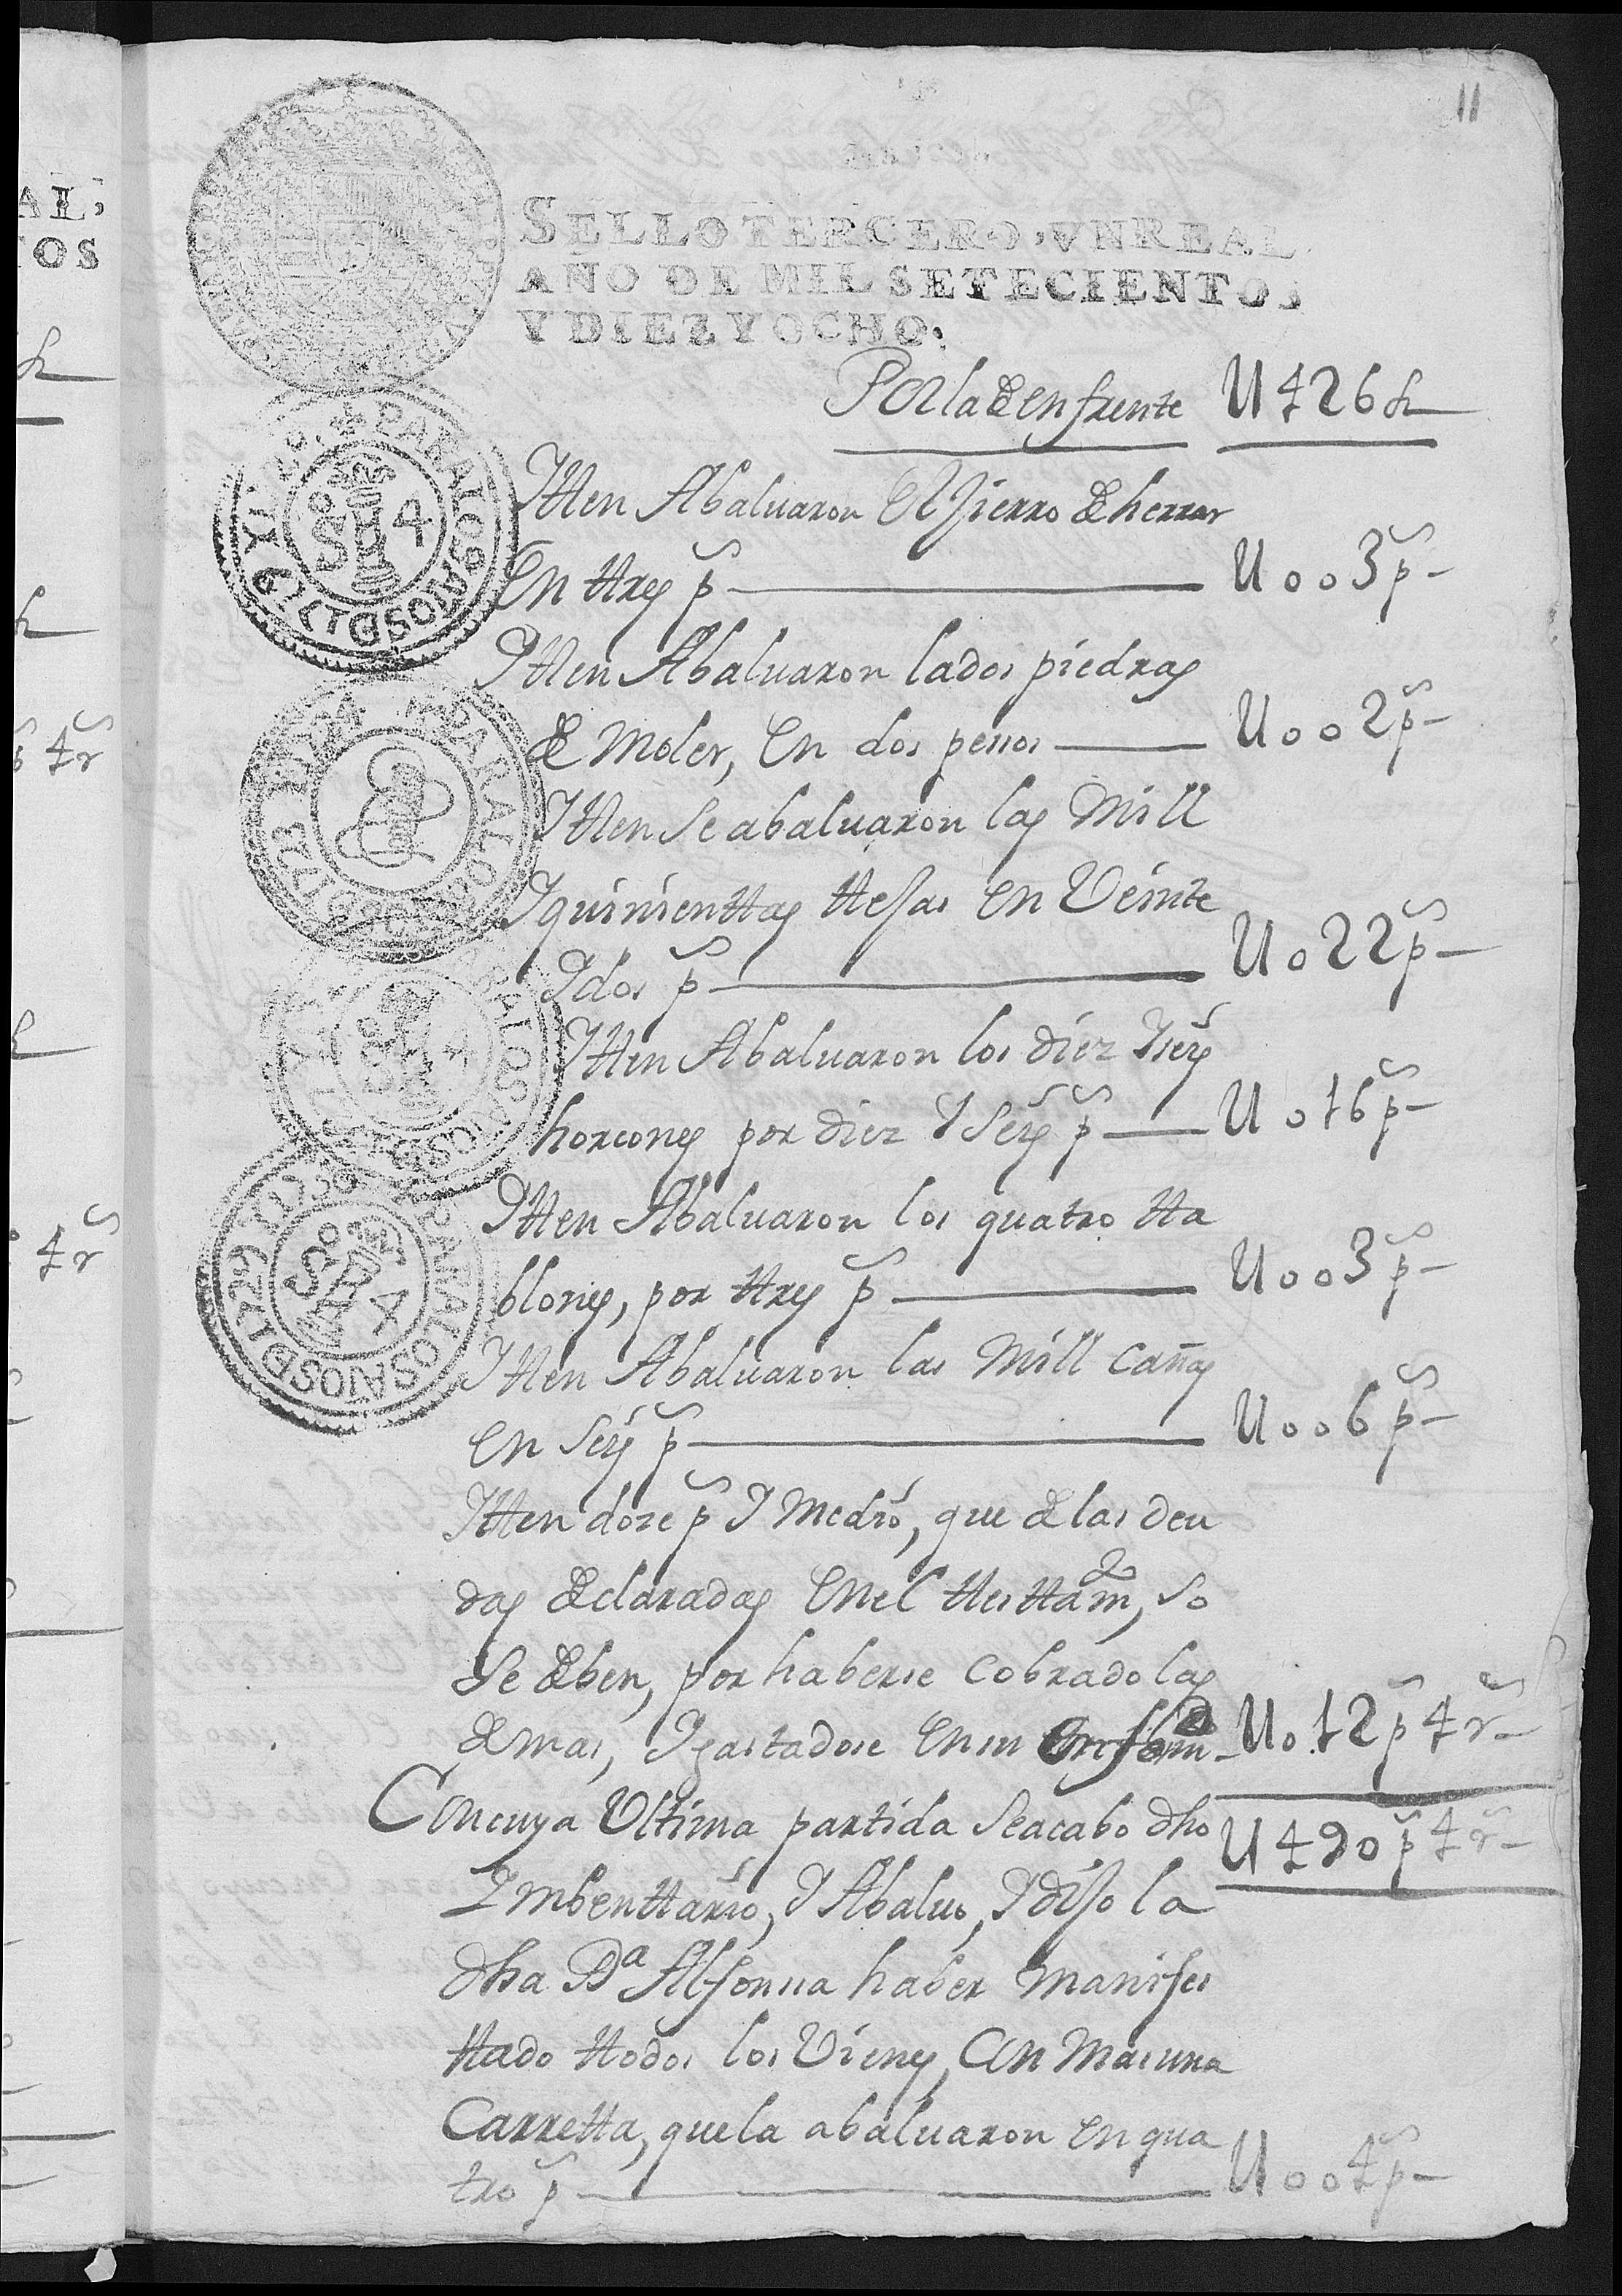 11
SELLO TERCERO, VN REAL,
AÑO DE MIL SETECIENTOS
Y DIEZ Y OCHO.
Por la de enfrente U426 p
Itten Abaluaron El fierro de herrar
En ttres ps U003 ps
Itten Abaluaron la dos piedras
de Moler, En dos pessos U002 ps
Itten Se abaluaron las Mill
Y quinienttas ttejas en Veinte
Y dos ps U022 ps
Itten Abaluaron los diez Y seis
horcones por diez Y Seis ps U016 ps
Itten Abaluaron los quatro tta
blones, por ttres ps U003 ps
Itten Abaluaron las Mill cañas
en Seis ps U006 ps
Itten doze ps Y Medio, que de las deu
das declaradas En el testtamto, so
Se deben, por haberse Cobrado las
demas, Y gastadose En su U012 ps 4 rs
Con cuya Vltima partida Se acabo dho U490 ps 4 rs
Imbenttario, Y Abaluo, Y dijo la
dha Da Alfonssa haber Manifes
ttado ttodos los Vienes, Con Mas una
Carretta, que la abaluaron en qua
tro ps U004 ps
PARA LOS AÑOS DE
PARA LOS AÑOS DE
PARA LOS AÑOS DE
PARA LOS AÑOS DE
AL,
TOS
4 rs
4 rs